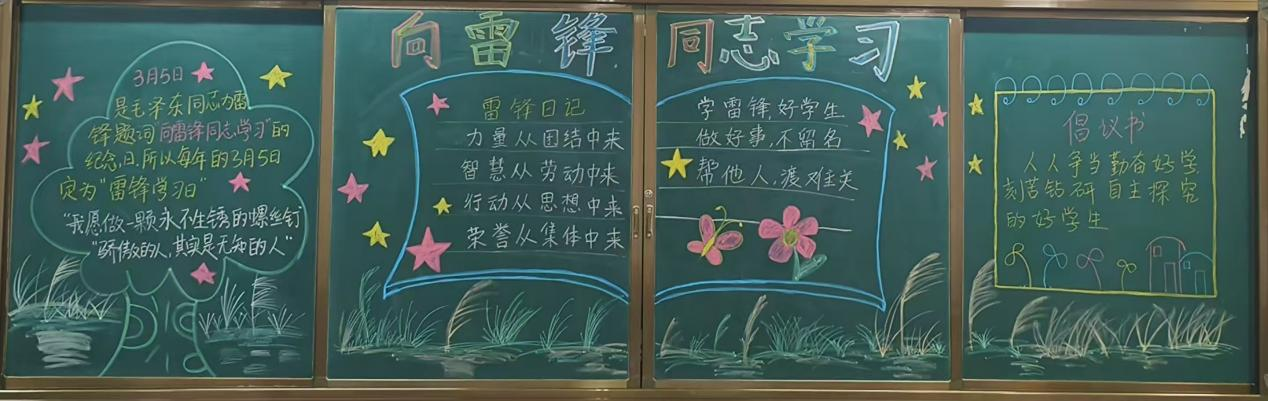 向雷锋同志学习
3月5日
是毛泽东同志为雷
锋题词"向雷锋同志学习"的
纪念日,所以每年的3月5日
定为"雷锋学习日"
"我愿做一颗永不生锈的螺丝钉"
"骄傲的人,其实是无知的人"
雷锋日记
力量从团结中来
智慧从劳动中来
行动从思想中来
荣誉从集体中来
学雷锋,好学生
做好事,不留名
帮他人,渡难关
倡议书
人人争当勤奋好学
刻苦钻研 自主探究
的好学生